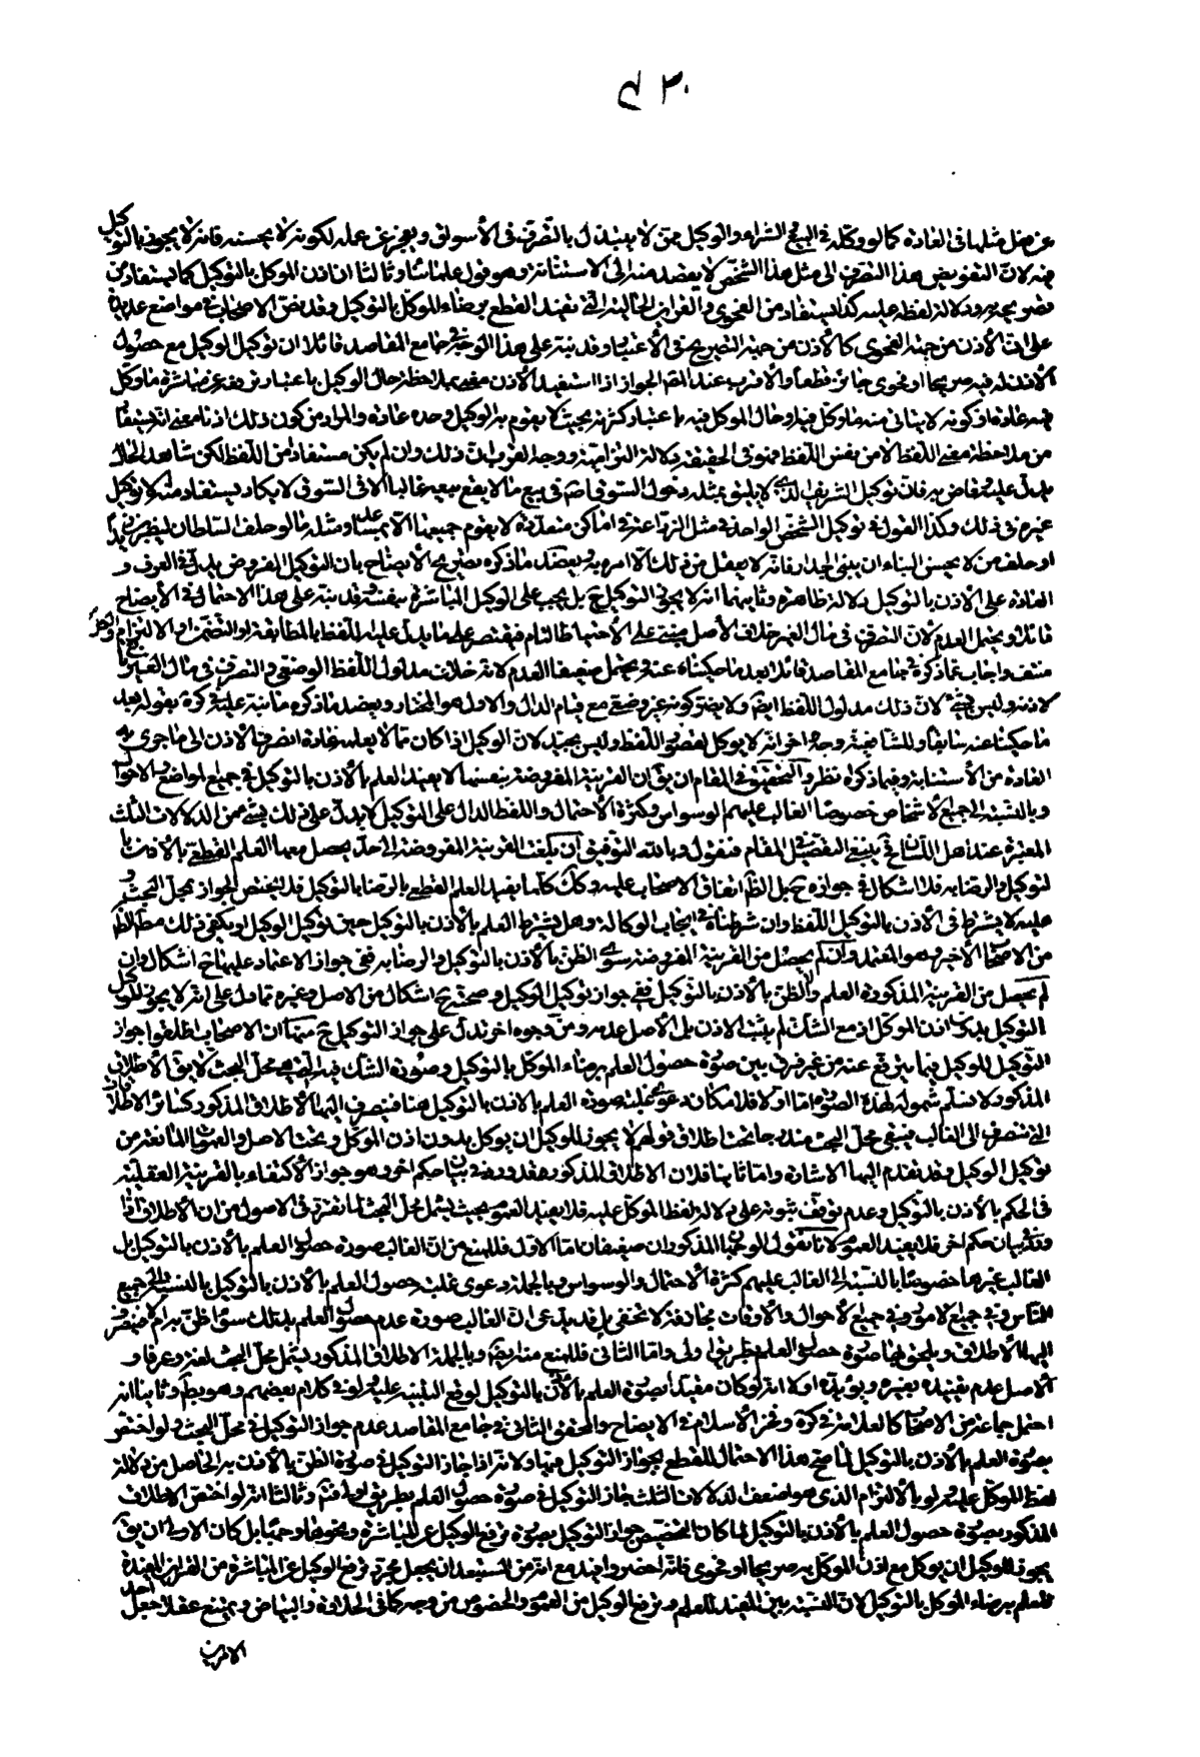 عن مثل مثلها فى العادة كما لو وكله فى البيع والشراء والوكيل ممن لا يبتذل بالتصرف فى الأسواق ويعجز عن عمله لكونه لا يحسنه فانه لا يجوز فيه التوكيل
فيه لان التفويض بهذا التصرف الى مثل هذا الشخص لا يقصد منه الا الاستنابة وهو قول علمائنا وثالثا ان اذن الموكل بالتوكيل كما يستفاد من
تصريحه ودلالة لفظه عليه كذا يستفاد من الفحوى والقراين الحالية التى تفيد القطع برضاء الموكل بالتوكيل وقد نص الاصحاب فى مواضع عديدة
على ان الأذن من جهة الفحوى كالأذن من جهة التصريح فى الأعتبار وقد نبه على هذا الوجه فى جامع المقاصد قائلا ان توكيل الوكيل مع حصول
الأذن له فيه صريحا او فحوى جائز قطعا والأقرب عند المص الجواز اذا استفيد الأذن بملاحظة حال الوكيل باعتبار ترفعه عن مباشرة ما وكل
فيه عادة او كونه لا يتاتى منه ما وكل فيه او حال الموكل فيه باعتبار كثرته بحيث لا يقوم به الوكيل وحده عادة والمراد من كون ذلك اذنا معنى انه يستفاد
من ملاحظة معنى اللفظ لا من نفس اللفظ فهو فى الحقيقة دلالة التزامية ووجه القرب ان ذلك وان لم يكن مستفادا من اللفظ لكن شاهد الحال
يدل عليه فان توكيل الشريف الذى لا يليق بمثله دخول السوق فى بيع ما لا يقع بيعه غالبا الا فى السوق لا يكاد يستفاد منه الا توكيل
غيره فى ذلك وكذا القول فى توكيل الشخص الواحد فى مثل الزراعة فى اماكن متعددة لا يقوم جميعها الا بمساعد ومثله ما لو حلف السلطان ليضربن زيدا
او حلف من لا يحسن البناء ان يبنى الجدار فانه لا يعقل من ذلك الا الامر به ويعضد ما ذكره تصريح الايضاح بان التوكيل المفروض يدل فى العرف و
العادة على الأذن بالتوكيل دلالة ظاهرة وثانيهما انه لا يجوز التوكيل ح بل يجب على الوكيل المباشرة بنفسه وقد نبه على هذا الاحتمال فى الأيضاح
قائلا ويحتمل العدم لان التصرف فى مال الغير خلاف الأصل مبنى على الأحتياط التام فيقتصر على ما يدل عليه اللفظ بالمطابقة او التضمن او الالتزام والكل
منتف واجاب عما ذكره فى جامع المقاصد قائلا بعد ما حكيناه عنه ويحتمل ضعيفا العدم لانه خلاف مدلول اللفظ الوضعى والتصرف فى مال الغير
لاذنه وليس بشئ لان ذلك مدلول اللفظ ايضا ولا يضر كونه غير وضعى مع قيام الدال والاول هو المختار ويعضد ما ذكره ما نبه عليه فى كره بقوله بعد
ما حكينا عنه سابقا وللشافعية وجه اخر انه لا يوكل لقصور اللفظ وليس بجيد لان الوكيل اذا كان مما لا يعمله عادة انصرف الأذن الى ما جرى به
العادة من الأستنابة وفيما ذكراه نظر والتحقيق فى المقام ان يق ان القرينة المفروضة بنفسها لا يفيد العلم بالأذن بالتوكيل فى جميع المواضع والاحوال
وبالنسبة الى جميع الاشخاص خصوصا الغالب عليهم الوسواس وكثرة الأحتمال واللفظ الدال على التوكيل لا يدل على ذلك بشئ من الدلالات الثلث
المعتبرة عند اهل اللسان فح ينبغى التفصيل فى المقام فنقول وبالله التوفيق ان بلغت القرينة المفروضة الى حد يحصل معها العلم القطعى بالأذن با
لتوكيل والرضا به فلا اشكال فى جوازه ح بل الظ اتفاق الاصحاب عليه وكك كلما يفيد العلم القطعى بالرضا بالتوكيل فلا يختص الجواز بمحل البحث و
عليه لا يشترط فى الأذن بالتوكيل اللفظ وان شرطناه فى ايجاب الوكالة وهل يشترط العلم بالأذن بالتوكيل حين توكيل الوكيل او يكفى ذلك مط الظ
من الاصحاب الأخير وهو المعتمد وان لم يحصل من القرينة المفروضة سوى الظن بالأذن بالتوكيل والرضا به ففى جواز الاعتماد عليها ح اشكال وان
لم يحصل من القرينة المذكورة العلم والظن بالأذن بالتوكيل ففى جواز توكيل الوكيل وصحته ح اشكال من الاصل وغيره مما دل على انه لا يجوز للوكيل
التوكيل بدون اذن الموكل اذ مع الشك لم يثبت الاذن بل الأصل عدمه ومن وجوه اخر تدل على جواز التوكيل ح منها ان الاصحاب اطلقوا جواز
التوكيل للوكيل فيما يترفع عنه من غير فرق بين صورة حصول العلم برضاء الموكل بالتوكيل وصورة الشك فيه التى هى محل البحث لا يق الأطلاق
المذكور لا نسلم شموله لهذه الصورة اما اولا فلامكان دعوى غلبة صورة العلم بالاذن بالتوكيل هنا فينصرف اليها الأطلاق المذكور كسائر الاطلاقات
التى تنصرف الى الغالب فيبقى محل البحث مندرجا تحت اطلاق قولهم لا يجوز للوكيل ان يوكل بدون اذن الموكل وتحت الاصل والعمومات المانعة من
توكيل الوكيل وقد تقدم اليها الاشارة واما ثانيا فلان الاطلاق المذكور فقد ورد فى بيان حكم اخر وهو جواز الأكتفاء بالقرينة العقلية
فى الحكم بالأذن بالتوكيل وعدم توقف ثبوته على دلالة لفظ الموكل عليه فلا يفيد العموم بحيث يشمل محل البحث لما تقرر فى الاصول من ان الأطلاق اذا
ورد لبيان حكم اخر فلا يفيد العموم لانا نقول الوجهان المذكوران ضعيفان اما الاول فللمنع من ان الغالب صورة حصول العلم بالأذن بالتوكيل بل
الغالب غيرها خصوصا بالنسبة الى الغالب عليهم كثرة الأحتمال والوسواس وبالجملة دعوى غلبة حصول العلم بالأذن بالتوكيل بالنسبة الى جميع
الناس وفى جميع الامور وفى جميع الأحوال والأوقات مجازفة لا تخفى بل قد يدعى ان الغالب صورة عدم حصول العلم بذلك سواء ظن به ام لا فينصرف
اليها الأطلاق ويلحق بها صورة حصول العلم بطريق اولى واما الثانى فللمنع منه ايضا وبالجملة الاطلاق المذكور يشمل محل البحث لغة وعرفا و
الاصل عدم تقييده بغيره ويؤيده اولا انه لو كان مقيدا بصورة العلم بالأذن بالتوكيل لوقع التنبيه عليه ولو فى كلام بعضهم وهو بط وثانيا انه
احتمل جماعة من الاصحاب كالعلامة فى كره وفخر الأسلام فى الايضاح والمحقق الثانى فى جامع المقاصد عدم جواز التوكيل فى محل البحث ولو اختص
بصورة العلم بالأذن بالتوكيل لما صح هذا الاحتمال للقطع بجواز التوكيل فيها ولانه اذا جاز التوكيل فى صورة الظن بالأذن به الحاصل من دلالة
لفظ الموكل عليه ولو بالألتزام الذى هو اضعف الدلالات الثلث جاز التوكيل فى صورة حصول العلم بطريق اولى فتم وثالثا انه لو اختص الاطلاق
المذكور بصورة حصول العلم بالأذن بالتوكيل لما كان لتخصيص جواز التوكيل بصورة ترفع الوكيل عن المباشرة ونحوها وجها بل كان الاولى ان يق
يجوز للوكيل ان يوكل مع اذن الموكل به صريحا او فحوى فانه احضر وافيد مع انه من المستبعد ان يجعل مجرد ترفع الوكيل عن المباشرة من القراين المفيدة
للعلم برضاء الموكل بالتوكيل لان النسبة بين المفيد للعلم وترفع الوكيل من العموم والخصوص من وجه كما فى الحلاوة والبياض ويمتنع عقلا جعل احد
الامرين